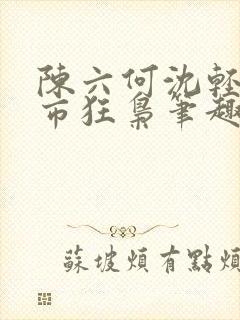 陳六何沈輕
市狂梟筆趣
蘇坡煩有點煩